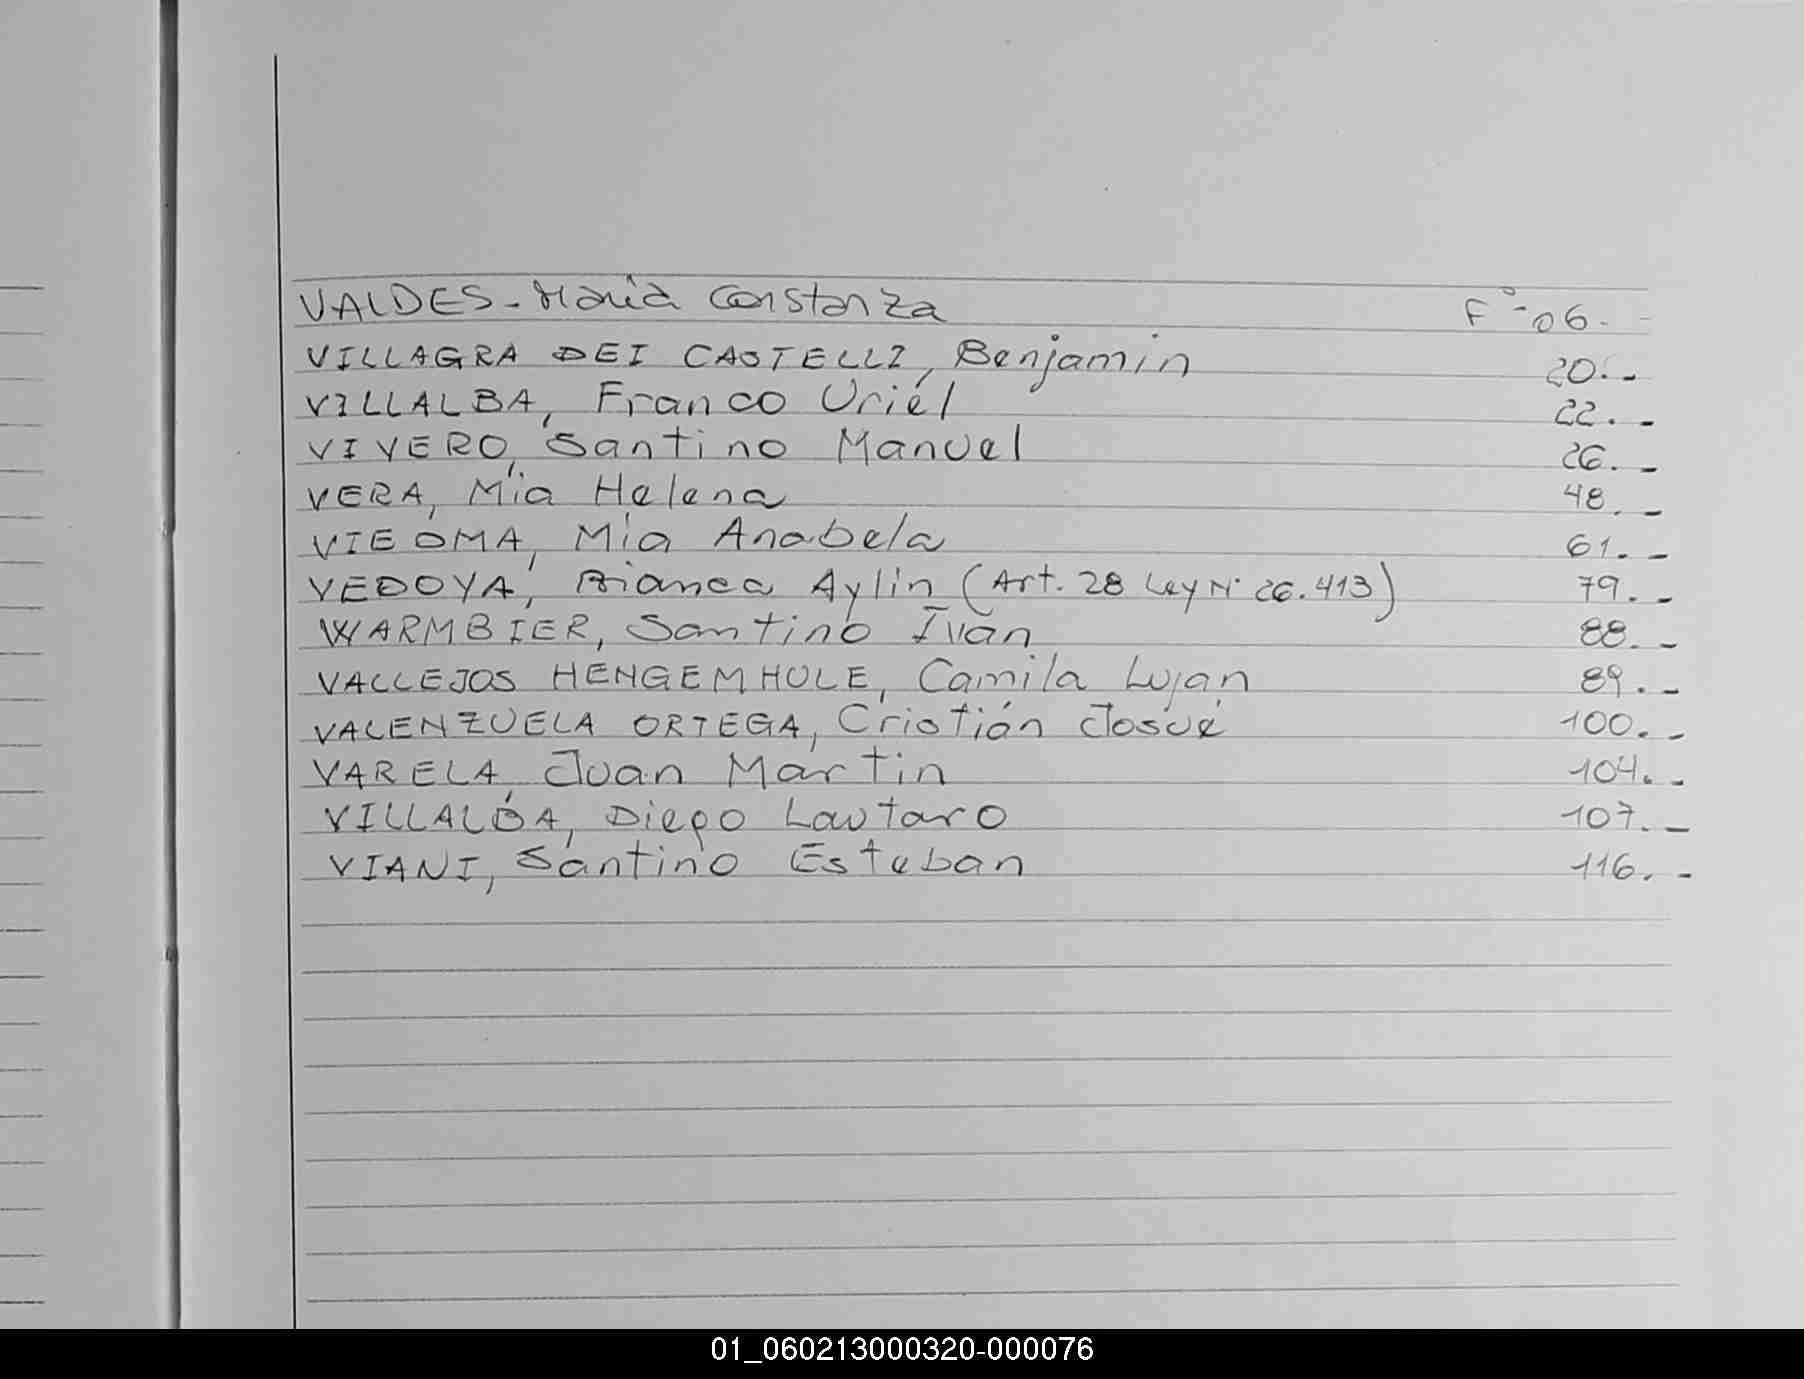 VALDES - María Constanza F° - 06.-
VILLAGRA DEI CASTELLI, Benjamín 20.-
VILLALBA, Franco Uriel 22.-
VIVERO, Santino Manuel 26.-
VERA, Mía Helena 48.-
VIEOMA, Mía Anabela 61.-
VEDOYA, Bianca Aylin (Art. 28 Ley N° 26.413) 79.-
WARMBIER, Santino Iván 88.-
VALLEJOS HENGEMHULE, Camila Luján 89.-
VALENZUELA ORTEGA, Cristián Josué 100.-
VARELA, Juan Martín 104.-
VILLALBA, Diego Lautaro 107.-
VIANI, Santino Esteban 116.-
01_060213000320-000076